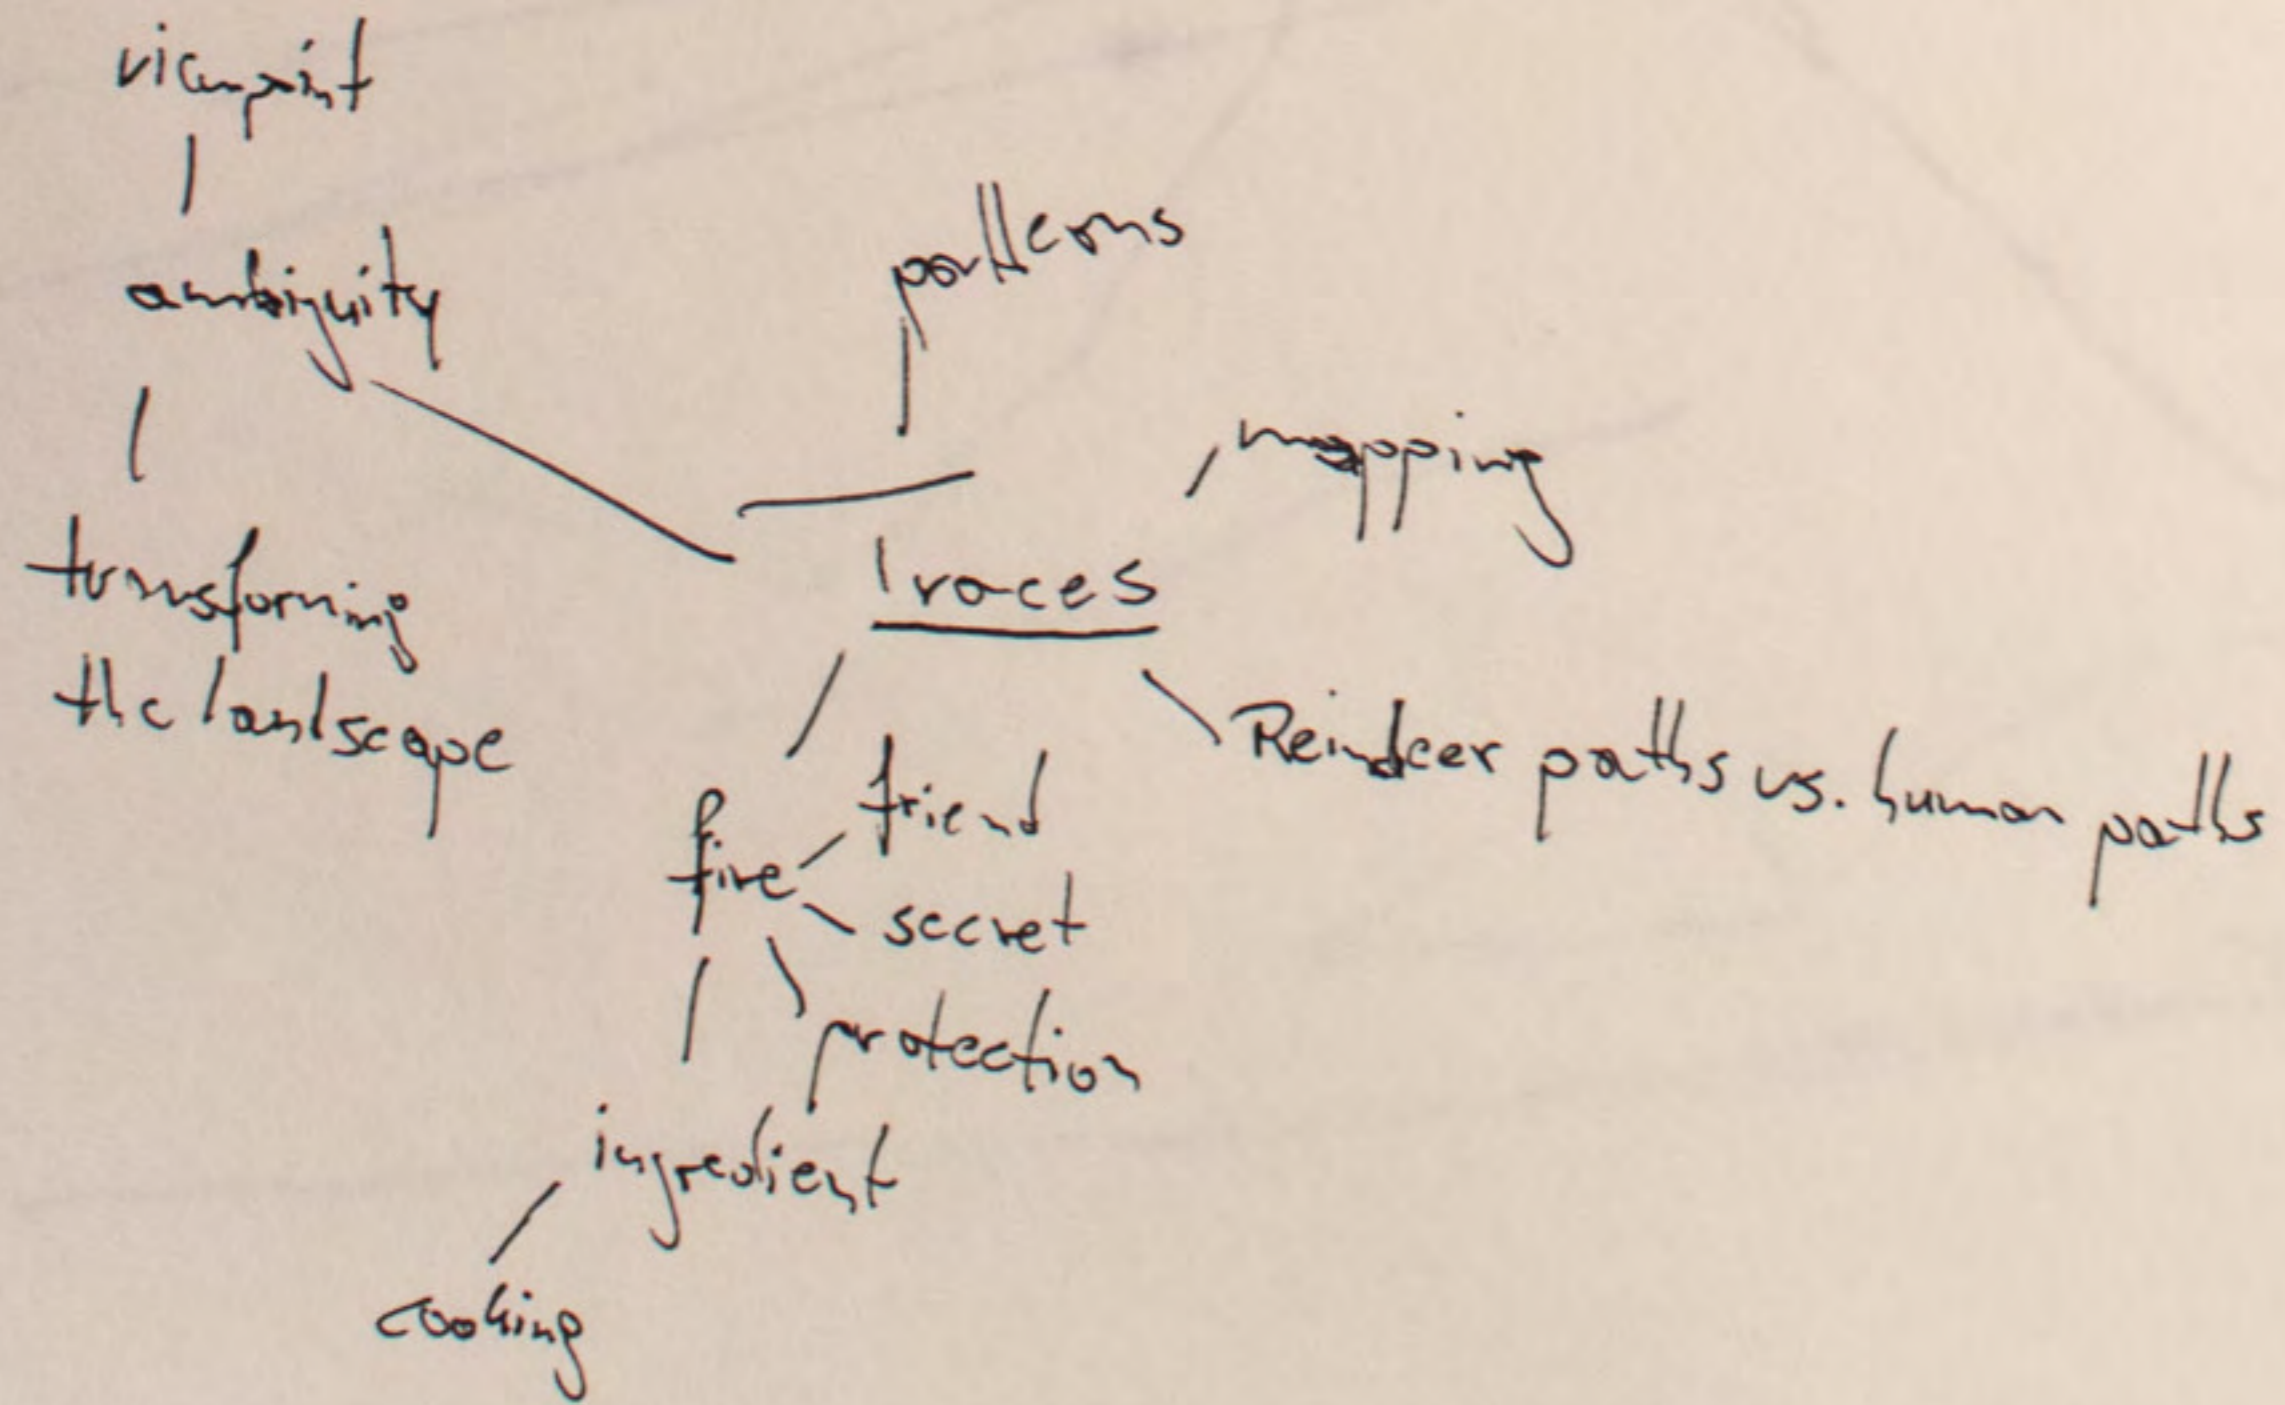 viewpoint
ambiguity
transforming
the landscape
patterns
mapping
Traces
Reindeer paths vs. human paths
fire
friend
secret
protection
ingredient
cooking